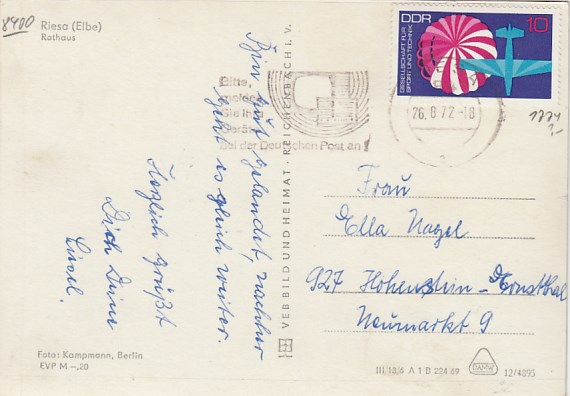 8400
Riesa (Elbe)
Rathaus
Bin gut gelandet, nachher
geht es gleich weiter.
Herzlich grüßt
Dich Deine
Foto: Kampmann, Berlin
EVP M –,20
VEB BILD UND HEIMAT · REICHENBACH I. V.
Bitte,
melden
Sie Ihr
Gerät
bei der Deutschen Post an!
26.8.72-18
DDR 10
GESELLSCHAFT FÜR
SPORT UND TECHNIK
1774
Frau
Ella Nagel
927 Hohenstein-Ernstthal
Neumarkt 9
III 18/6 A 1 B 224 69
12/4895